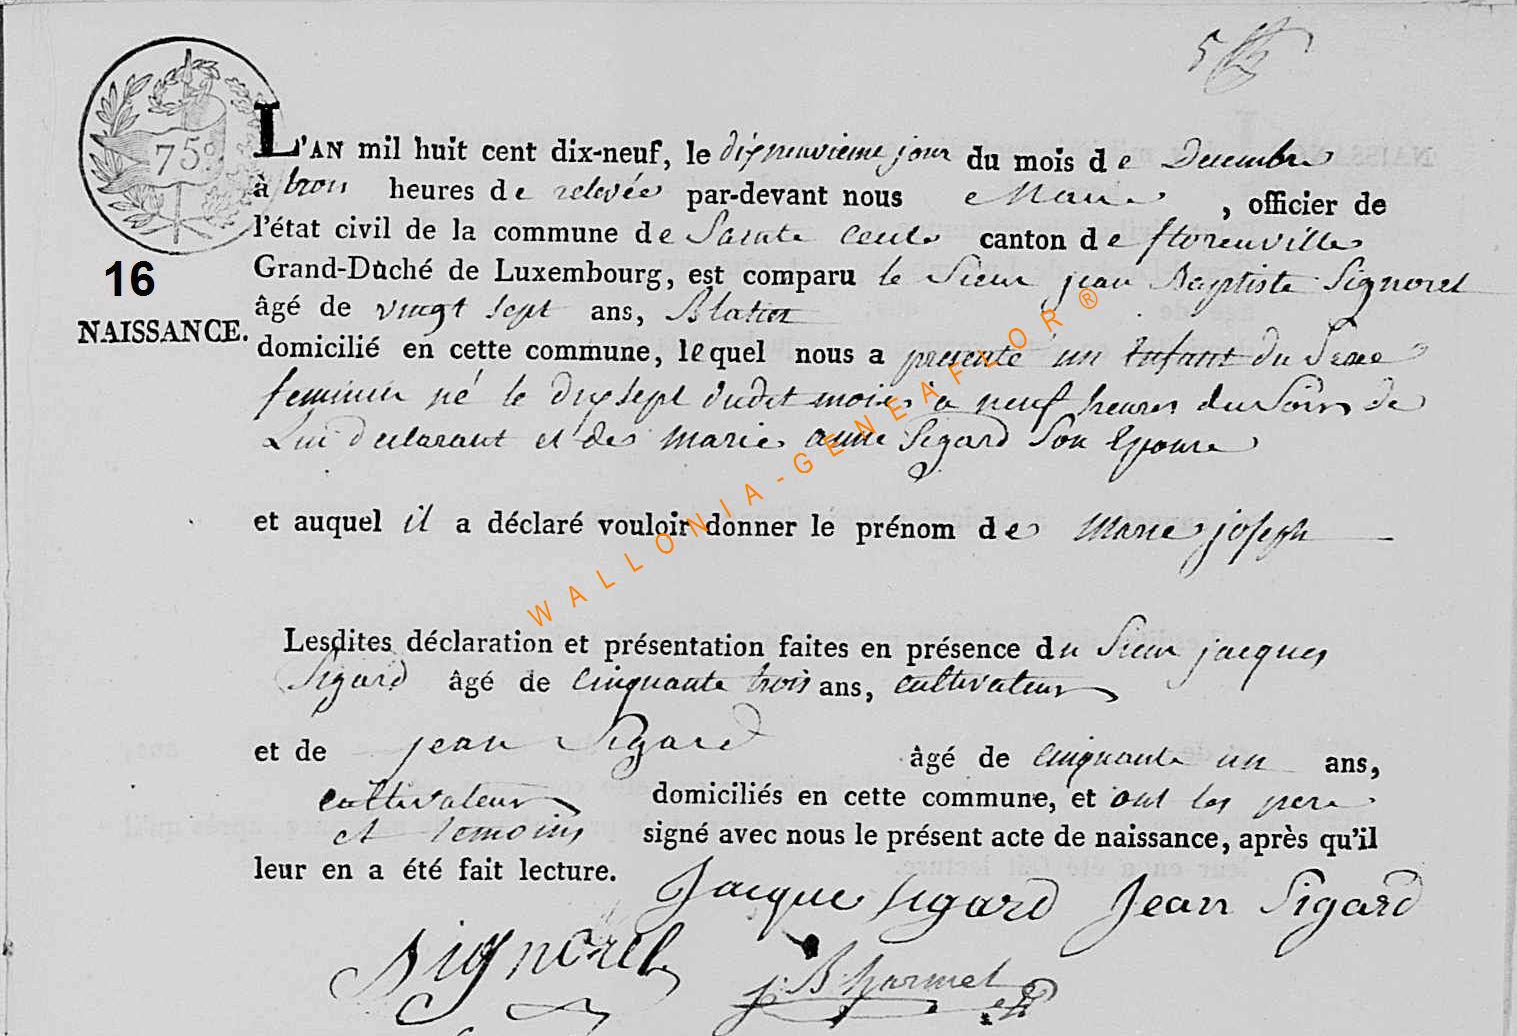 75c
L'AN mil huit cent dix-neuf, le dixneuvieme jour du mois de Decembre
à trois heures de relevée par-devant nous Maire , officier de
l'état civil de la commune de Sainte Cecile canton de florenville
Grand-Duché de Luxembourg, est comparu le Sieur jean Baptiste Signorel
16
NAISSANCE.
âgé de vingt sept ans,
domicilié en cette commune, lequel nous a presenté un Enfant du Sexe
feminin né le dixsept dudit mois à neuf heures du Soir de
Lui declarant et de Marie anne Sigard Son Epouse
et auquel il a déclaré vouloir donner le prénom de Marie joseph
WALLONIA-GENEAFLOR®
Lesdites déclaration et présentation faites en présence du Sieur jacques
Sigard âgé de Cinquante trois ans, cultivateur
et de jean Sigard âgé de Cinquante un ans,
cultivateur domiciliés en cette commune, et ont les pere
et temoins signé avec nous le présent acte de naissance, après qu'il
leur en a été fait lecture.
Jacque Sigard Jean Sigard
Signorel